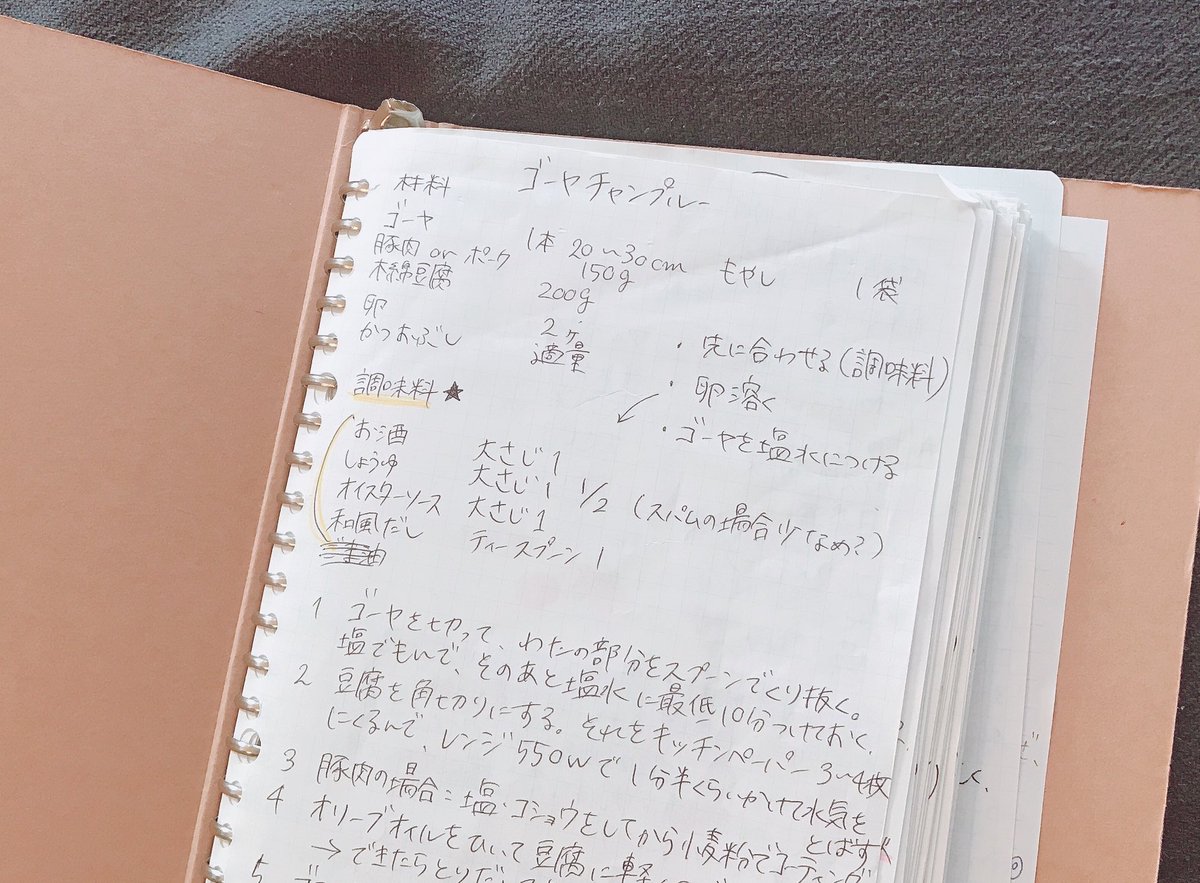 ゴーヤチャンプルー
材料
ゴーヤ 1本 20〜30cm もやし 1袋
豚肉 or ポーク 150g
木綿豆腐 200g
卵 2ヶ
かつおぶし 適量
・先に合わせる(調味料)
・卵溶く
・ゴーヤを塩水につける
調味料★
お酒 大さじ1
しょうゆ 大さじ1 1/2 (スパムの場合少なめ?)
オイスターソース 大さじ1
和風だし ティースプーン1
ごま油
1 ゴーヤを切って、わたの部分をスプーンでくり抜く。
塩でもんで、そのあと塩水に最低10分つけておく。
2 豆腐を角切りにする。それをキッチンペーパー3〜4枚
にくるんで、レンジ550Wで1分半くらいかけて水気を
とばす
3 豚肉の場合:塩・コショウをしてから小麦粉でコーティング
4 オリーブオイルをひいて豆腐に軽く
→できたらとりだし
5 ゴ